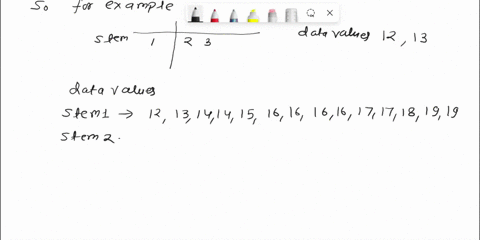 So for example
stem 1 2 3 data values 12, 13
data values
stem1 → 12, 13, 14, 14, 15, 16, 16, 16, 16, 17, 17, 18, 19, 19
stem 2.